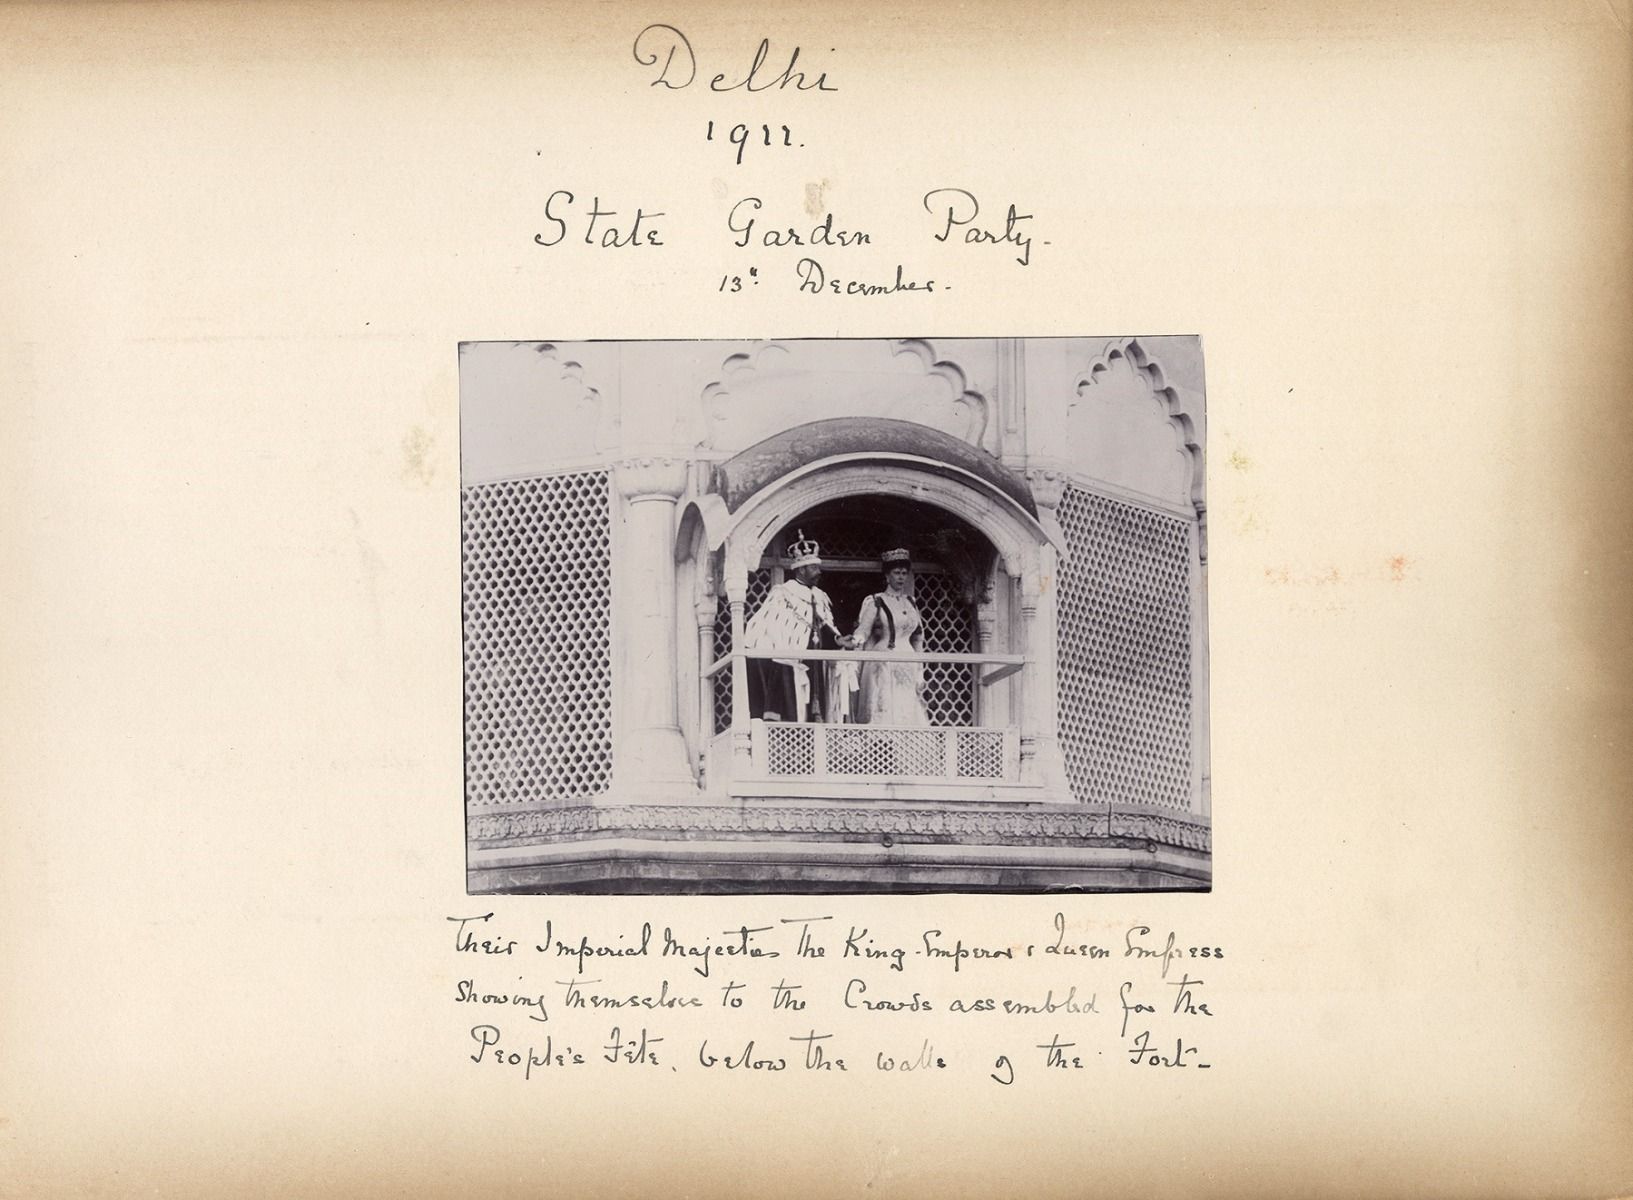 Delhi
1911.
State Garden Party.
13th December.
Their Imperial Majesties The King-Emperor & Queen Empress
Showing themselves to the Crowds assembled for the
People's Fête, below the walls of the Fort-